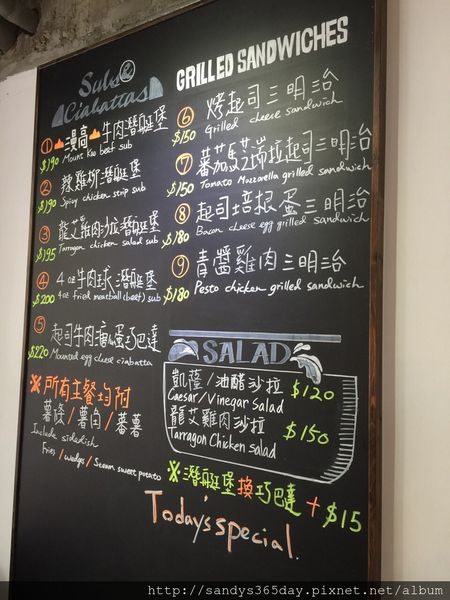 Subs &
Ciabattas
① 漫高 牛肉潛艇堡
$190 Mount Kao beef sub
② 辣雞柳潛艇堡
$190 Spicy chicken strip sub
③ 龍艾雞肉沙拉潛艇堡
$195 Tarragon chicken salad sub
④ 4 oz 牛肉球 潛艇堡
$200 4 oz fried meatball (beef) sub
⑤ 起司牛肉滿蛋巧巴達
$220 Mounted egg cheese ciabatta
※ 所有主餐均附
薯條 / 薯角 / 蕃薯
Include sidedish
Fries / wedges / Steam sweet potato
GRILLED SANDWICHES
⑥ 烤起司三明治
$150 Grilled cheese sandwich
⑦ 蕃茄馬芝瑞拉起司三明治
$150 Tomato Mozzarella grilled sandwich
⑧ 起司培根蛋三明治
$180 Bacon cheese egg grilled sandwich
⑨ 青醬雞肉三明治
$180 Pesto chicken grilled sandwich
SALAD
凱薩/油醋沙拉 $120
Caesar/Vinegar Salad
龍艾雞肉沙拉 $150
Tarragon Chicken salad
※ 潛艇堡換巧巴達 + $15
Today's special.
http://sandys365day.pixnet.net/album